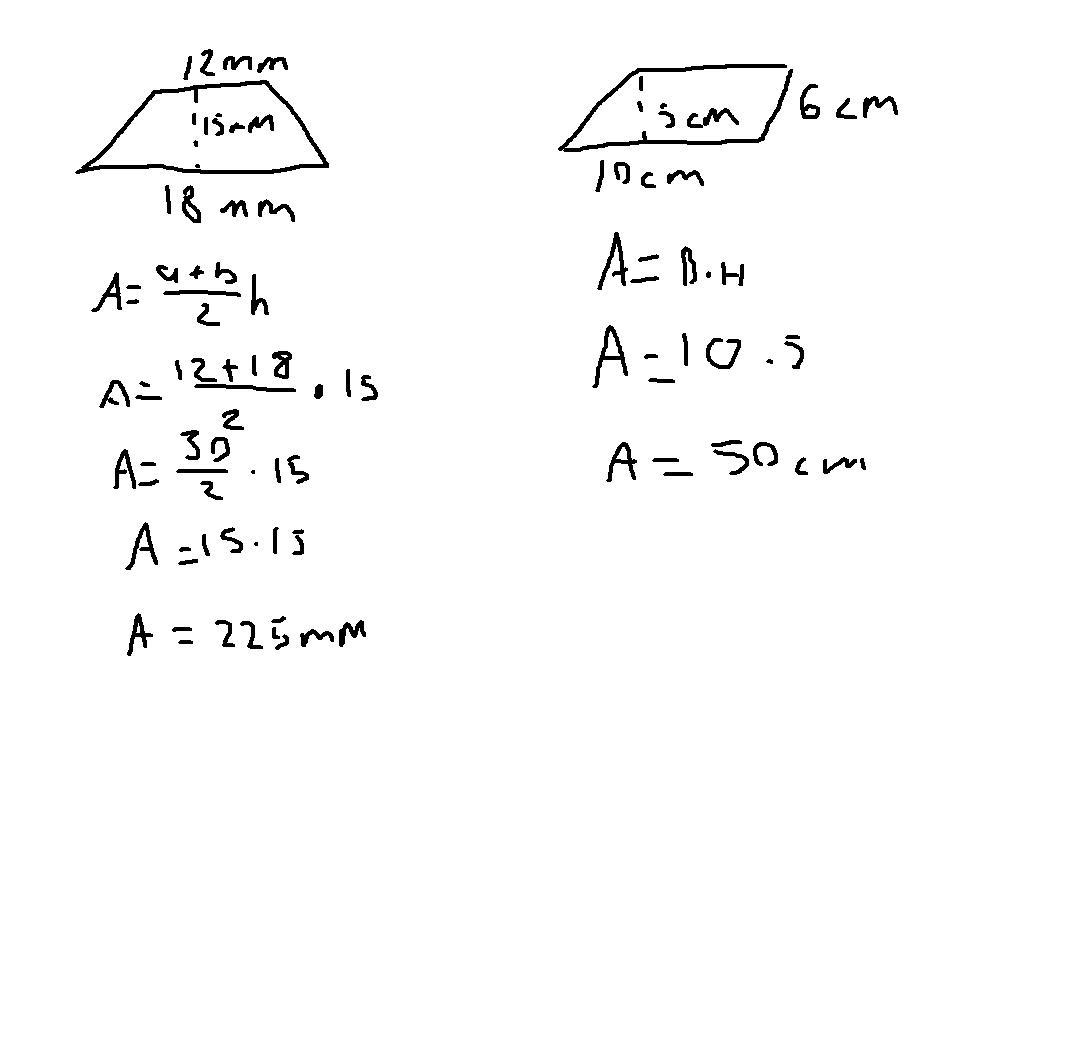 12mm
15mm
18 mm
A= a+b/2 h
A= 12+18/2 . 15
A= 30/2 . 15
A =15.15
A = 225mm
5cm
6cm
10cm
A= B.H
A=10.5
A = 50cm